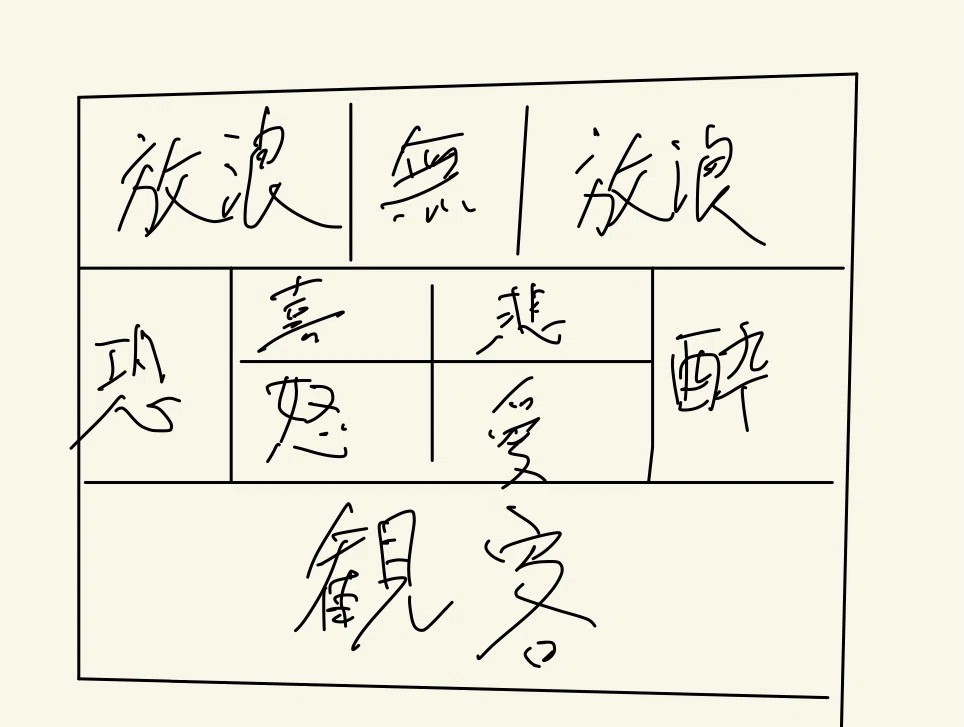 放浪 無 放浪
恐 喜 悲 酔
怒 愛
観客